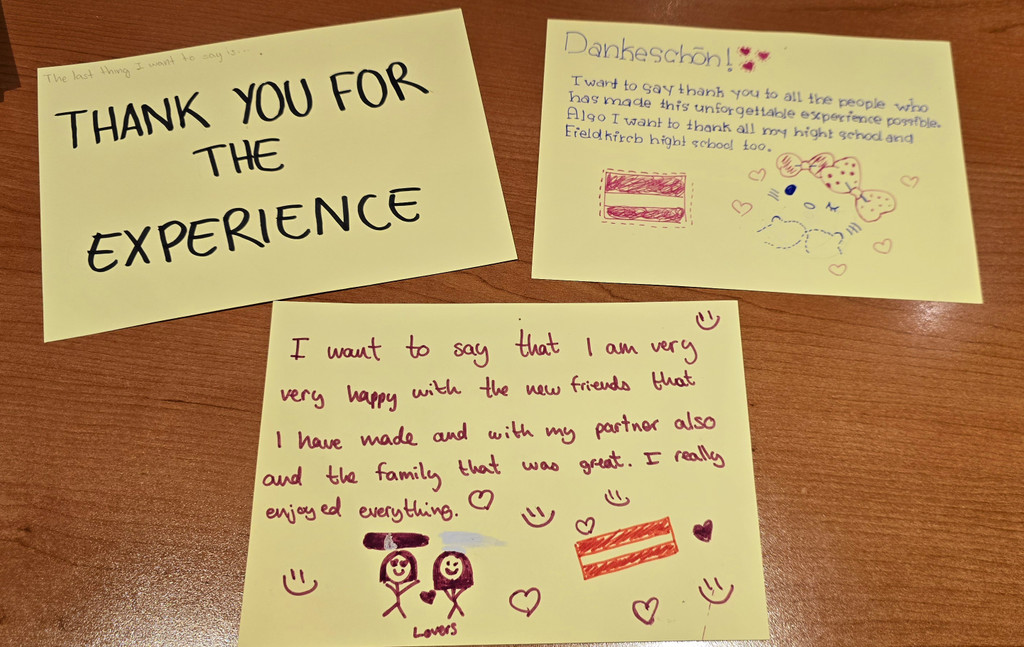 The last thing I want to say is....
THANK YOU FOR
THE
EXPERIENCE
Dankeschön!
I want to say thank you to all the people who
has made this unforgettable experience possible.
Also I want to thank all my hight school and
Fieldkirch hight school too.
I want to say that I am very
very happy with the new friends that
I have made and with my partner also
and the family that was great. I really
enjoyed everything.
Lovers